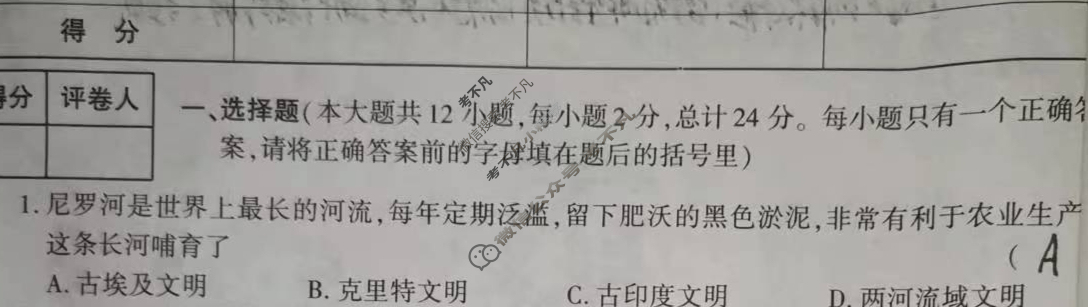 得 分
得分 评卷人
一、选择题(本大题共 12 小题,每小题 2 分,总计 24 分。每小题只有一个正确答
案,请将正确答案前的字母填在题后的括号里)
1. 尼罗河是世界上最长的河流,每年定期泛滥,留下肥沃的黑色淤泥,非常有利于农业生产
这条长河哺育了 ( A
A. 古埃及文明 B. 克里特文明 C. 古印度文明 D. 两河流域文明